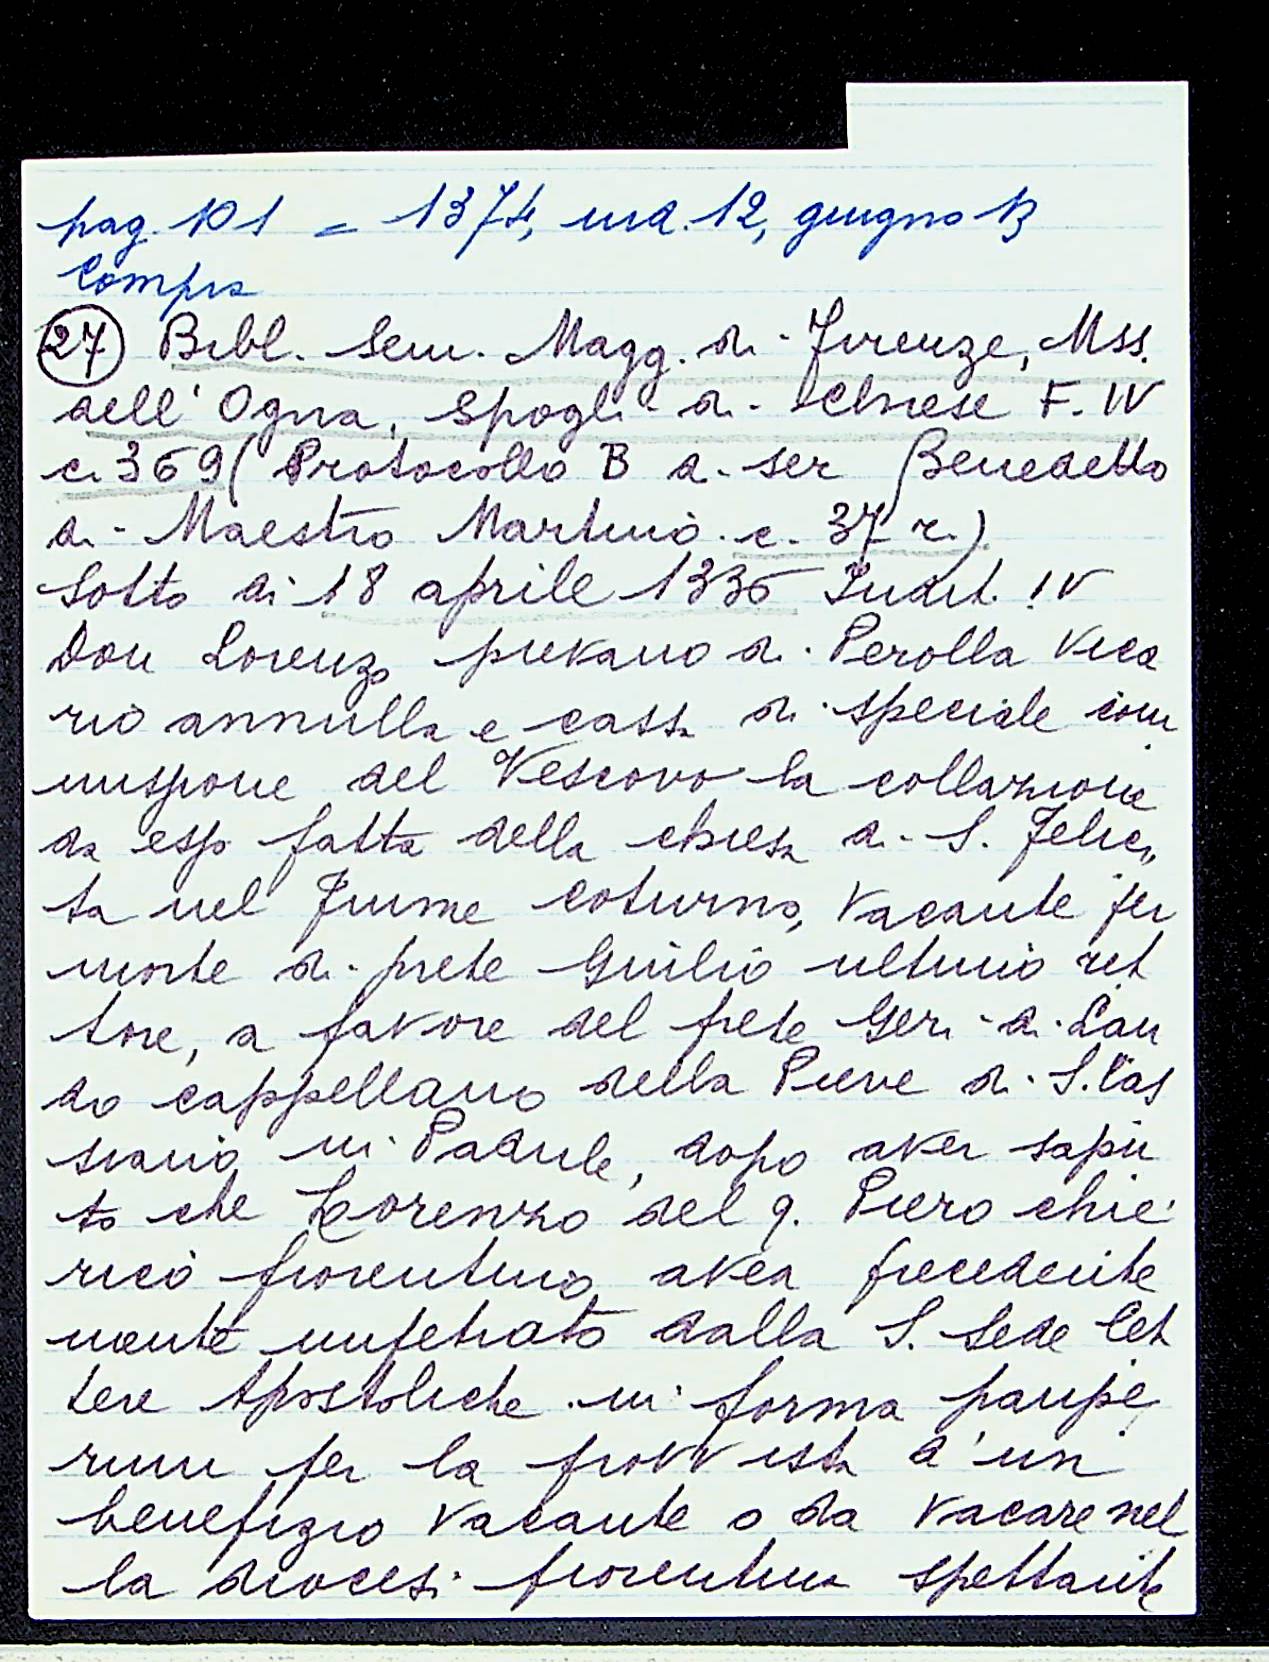 pag. 101 = 1374, ind. 12, giugno 13
Compra
27) Bibl. Sem. Magg. di Firenze, Mss.
dell'Ogna, Spogli di Chiese F. IV
c. 369 (Protocollo B di ser Benedetto
di Maestro Martino c. 37 r.)
Sotto dì 18 aprile 1336 Indit. IV
Don Lorenzo pievano di Perolla Vica
rio annulla e cassa di speciale com
missione del Vescovo la collazione
da esso fatta della chiesa di S. Felici
ta nel Fiume coturno, vacante per
morte di prete Giulio ultimo ret
tore, a favore del prete Geri di Lan
do cappellano della Pieve di S. Cas
siano in Padule, dopo aver sapu
to che Lorenzo del q. Piero chie
rico fiorentino avea precedente
mente impetrato dalla S. Sede let
tere Apostoliche in forma paupe
rum per la provvista d'un
benefizio vacante o da vacare nel
la diocesi fiorentina spettante